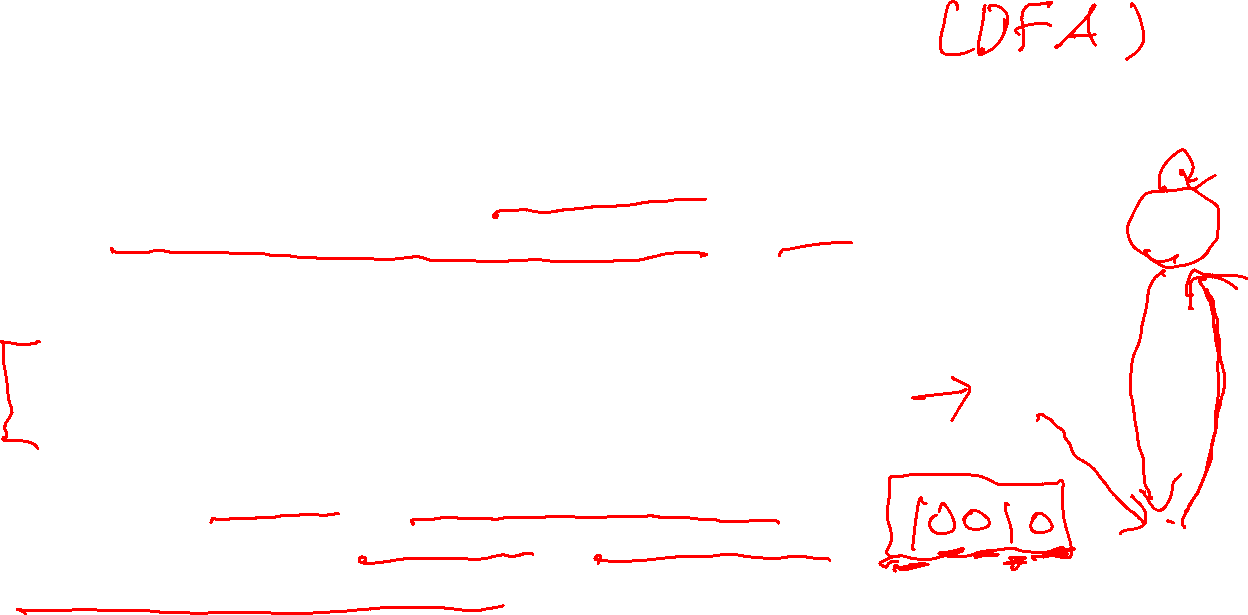 (DFA)
10010